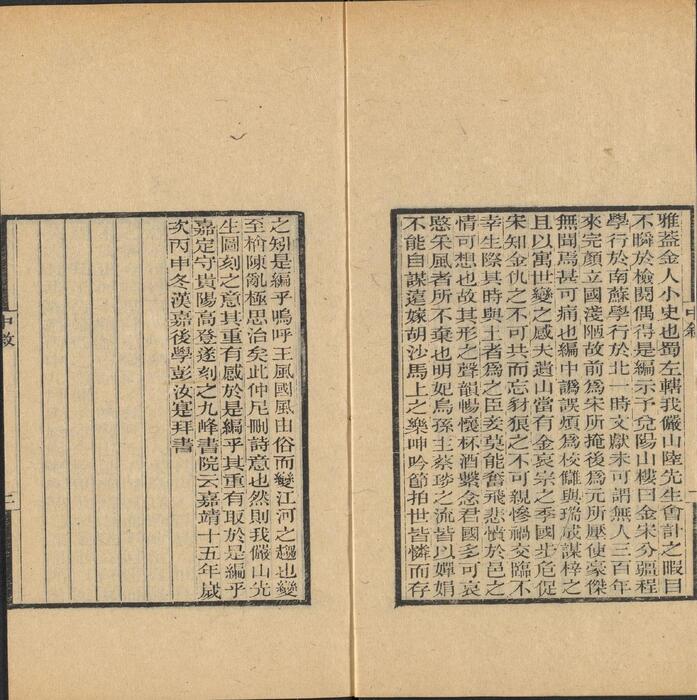 雅蓋金人小史也蜀左轄我儼山陸先生會計之暇目
不瞬於檢閱偶得是編示予兌陽山樓曰金宋分疆程
學行於南蘇學行於北一時文獻未可謂無人三百年
來完顏立國淺陋故前為宋所掩後為元所壓使豪傑
無聞焉甚可痛也編中譌誤煩為校讎與瑞成謀梓之
且以寓世變之感夫遺山當有金哀宗之季國步危促
宋知金仇之不可共而忘豺狼之不可親慘禍交臨不
幸生際其時與土者為之臣妾莫能奮飛悲憤於邑之
情可想也故其形之聲韻暢懷杯酒繫念君國多可哀
愍采風者所不棄也明妃烏孫主蔡琰之流皆以嬋娟
不能自謀遠嫁胡沙馬上之樂呻吟節拍世皆憐而存
之矧是編乎嗚呼王風國風由俗而變江河之趨也變
至檜陳亂極思治矣此仲尼刪詩意也然則我儼山先
生圖刻之意其重有感於是編乎其重有取於是編乎
嘉定守貴陽高登遂刻之九峰書院云嘉靖十五年歲
次丙申冬漢嘉後學彭汝寔拜書
中敘
一
中敘
二